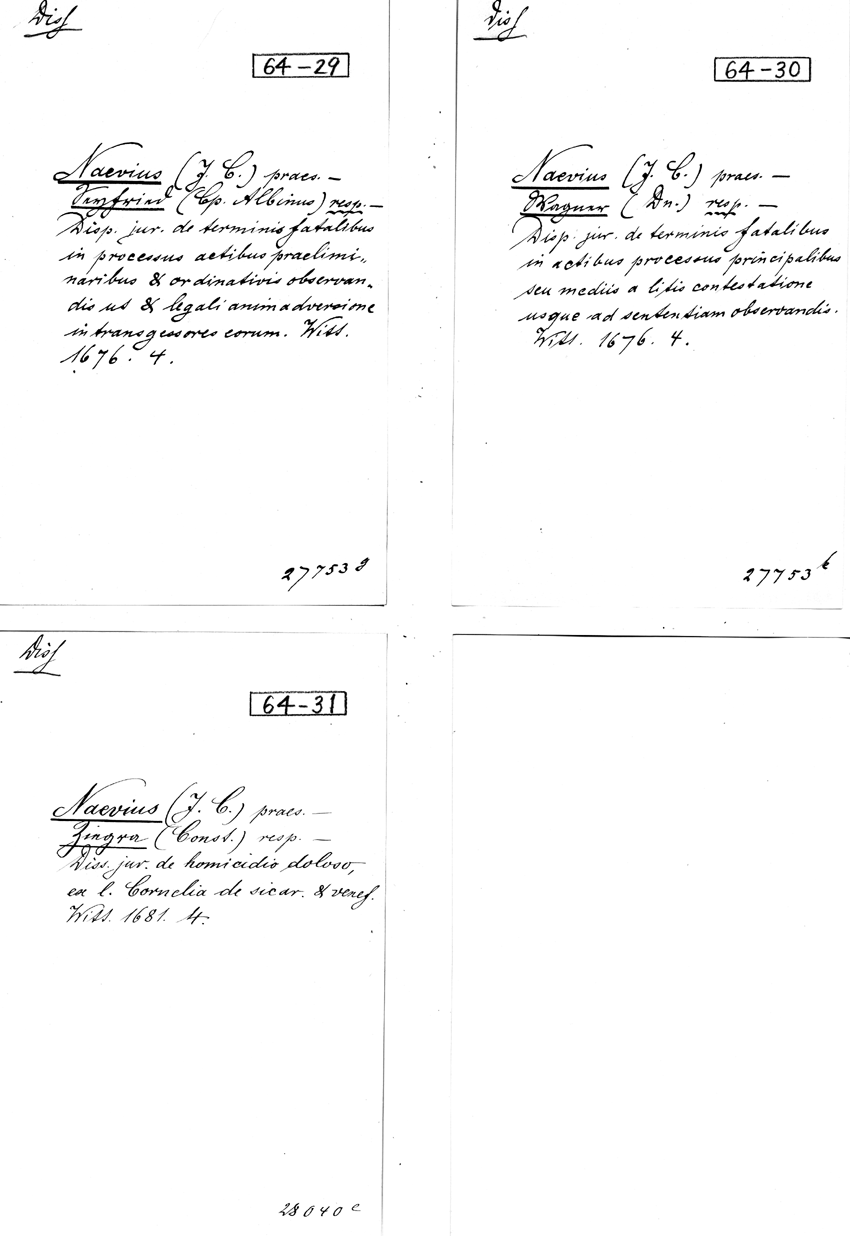 Diss
64-29
Naevius (J. C.) praes. —
Seyfried (Cp. Albinus) resp. —
Disp. jur. de terminis fatalibus
in processus actibus praelimi-
naribus & ordinativis observan-
dis ut & legali animadversione
in transgessores eorum. Witt.
1676. 4.
27753 g
Diss
64-30
Naevius (J. C.) praes. —
Wagner (Dn.) resp. —
Disp. jur. de terminis fatalibus
in actibus processus principalibus
seu mediis a litis contestatione
usque ad sententiam observandis.
Witt. 1676. 4.
27753
Diss
64-31
Naevius (J. C.) praes. —
Ziegra (Const.) resp. —
Diss. jur. de homicidio doloso,
ex l. Cornelia de sicar. & venef.
Witt. 1681. 4.
28040 e